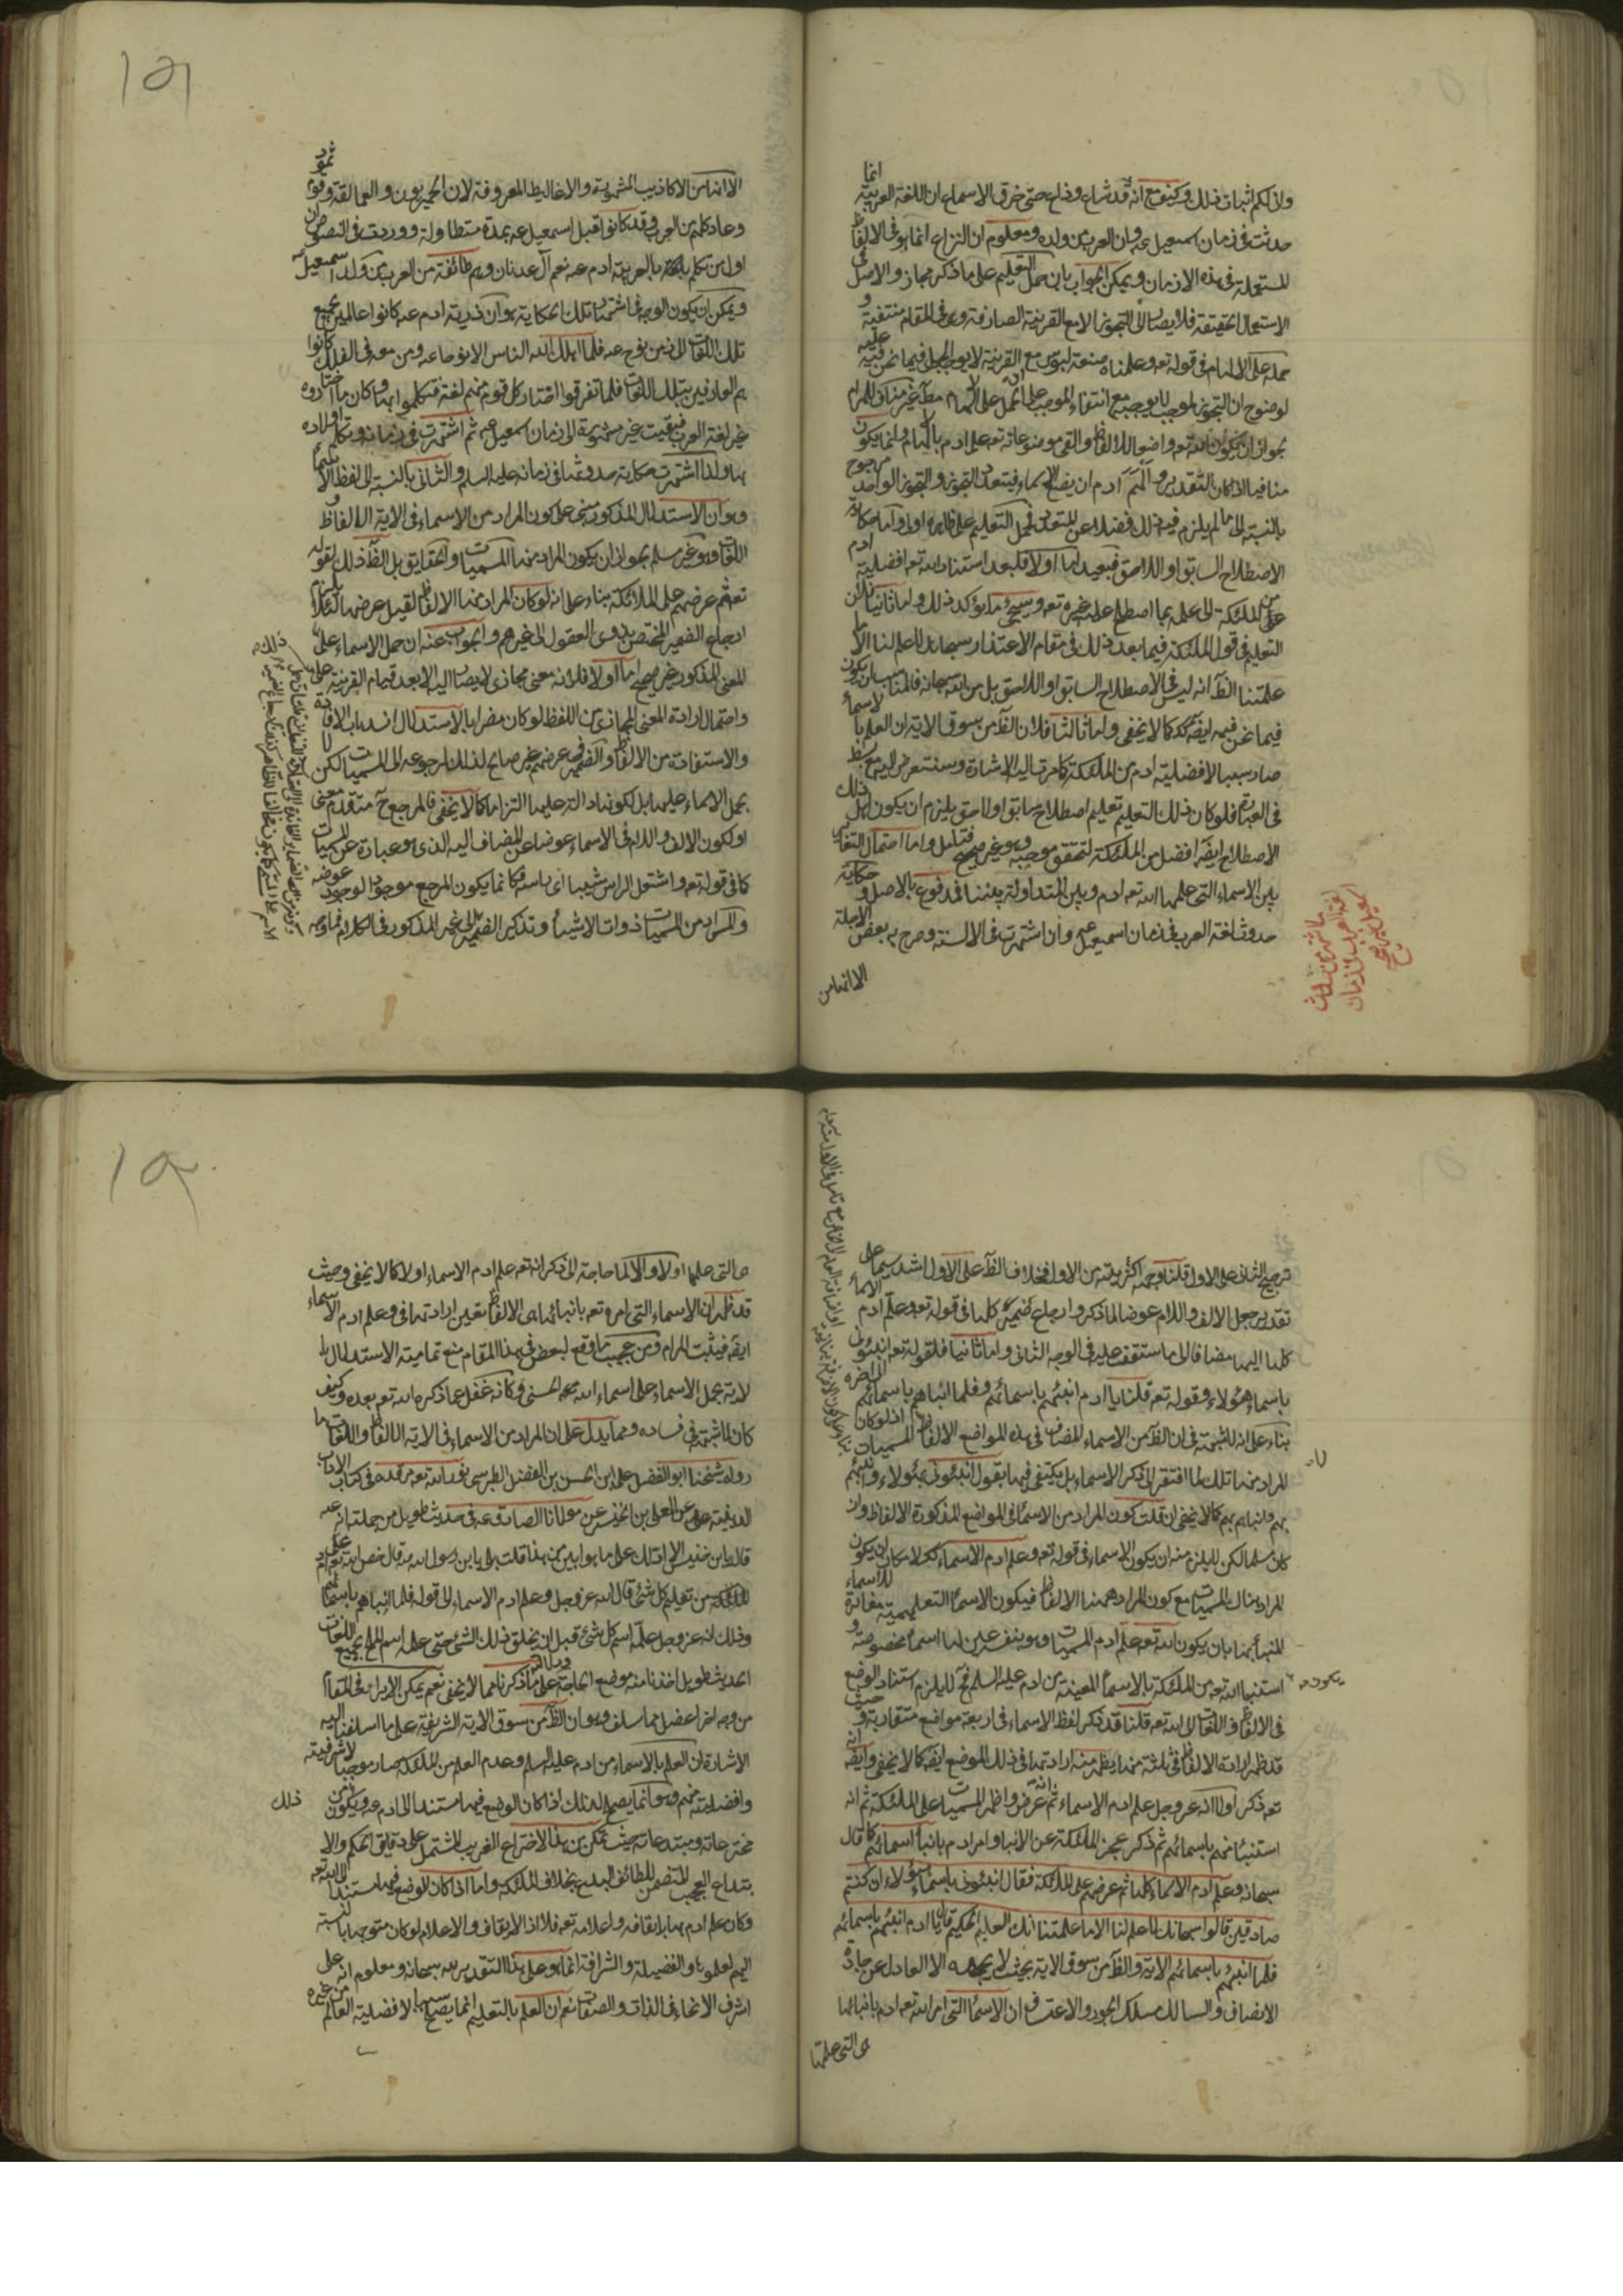 وانى لكم اثبات ذلك وكيف مع انه قد شاع وذاع حتى خرق الاسماع ان اللغة العربية انما
حدثت فى زمان اسمعيل عه وان العرب من ولده ومعلوم ان النزاع انما هو فى الالفاظ
المستعملة فى هذه الازمان ويمكن الجواب بان حمل التعليم على ما ذكر مجاز والاصل فى
الاستعمال الحقيقة فلا يصار الى التجوز الا مع القرينة الصارفة وهى فى المقام منتفية و
حمله على الالهام فى قوله تعه وعلمناه صنعة لبوس مع القرينة لا يوجب الحمل فيما نحن فيه عليه
لوضوح ان التجوز لموجب لا يوجبه مع انتفاء الموجب
بجواز ان يكون الله تعه واضعا للالفاظ والقى موضوعاته تعه على ادم بالهام وانما يكون
منافيا اذا كان التقدير والهم ادم ان يضع الاسماء فيتعدد التجوز والتجوز الواحد مرجوح
بالنسبة الى ما لم يلزم فيه ذلك فضلا عن المتعدد فحمل التعليم على ظاهره اولى واما حكاية
الاصطلاح السابق او اللاحق فبعيد اما اولا فلبعد استناد الله تعه افضلية ادم
على الملئكة الى علمه بما اصطلح عليه غيره تعه وسيجئ ما يؤكد ذلك واما ثانيا فلان
التعليم فى قول الملئكة فيما بعد ذلك فى مقام الاعتذار سبحانك لا علم لنا الا ما
علمتنا الظ انه ليس فى الاصطلاح السابق او اللاحق بل من الله سبحانه فالمناسب ان يكون
فيما نحن فيه ايضه كك كما لا يخفى واما ثالثا فلان الظ من سوق الاية ان العلم بالاسماء
صار سببا لافضلية ادم من الملئكة كما مرت اليه الاشارة وسنتعرض اليه مع بسط
فى العبارة فلو كان ذلك التعليم تعليم اصطلاح سابق او لاحق يلزم ان يكون اهل ذلك
الاصطلاح ايضه افضل من الملئكة لتحقق موجبه وهو غير صحيح فتامل واما احتمال التغاير
بين الاسماء التى علمها الله تعه ادم وبين المتداولة بيننا فمدفوع بالاصل و حكاية
حدوث لغة العرب فى زمان اسمعيل عه وان اشتهرت فى الالسنة وصرح به بعض الاجلة
الا انها من
ما اشتهر من حدوث
لغة العرب فى زمان
اسمعيل غير صحيح
١٥١
الا انها من الاكاذيب المشهورة والاغاليط المعروفة لان الحميريون والعمالقة وقوم ثمود
وعاد كلهم من العرب وقد كانوا قبل اسمعيل عه بمدة متطاولة ووردت فى النصوص ان
اول من تكلم بالعربية ادم عه نعم آل عدنان وهم طائفة من العرب من ولد اسمعيل عه
ويمكن ان يكون الوجه فى اشتهار تلك الحكاية هو ان ذرية ادم عه كانوا عالمين بجميع
تلك اللغات الى زمن نوح عه فلما اهلك الله الناس الا نوحا عه ومن معه فى الفلك كانوا
هم العارفين بتلك اللغات فلما تفرقوا اختار كل قوم منهم لغة فتكلموا بها وكان ما اختاروه
غير لغة العرب فبقيت غير مشهورة الى زمان اسمعيل عه ثم اشتهرت فى زمانه وتكلم اولاده
بها ولذا اشتهرت حكاية حدوثها فى زمانه عليه السلم والثانى بالنسبة الى لفظ الاسماء
وهو ان الاستدلال المذكور مبنى على كون المراد من الاسماء فى الاية الالفاظ و
اللغات وهو غير مسلم بجواز ان يكون المراد منها المسميات والحقايق بل الظ ذلك لقوله
تعه ثم عرضهم على الملائكة بناء على انه لو كان المراد منها الالفاظ لقيل عرضها لئلا يلزم
ارجاع الضمير المختص بذوى العقول الى غيرهم والجواب عنه ان حمل الاسماء على
المعنى المذكور غير صحيح اما اولا فلانه معنى مجازى لا يصار اليه الا بعد قيام القرينة عليه
واحتمال ارادة المعنى المجازى من اللفظ لو كان مضرا بالاستدلال انسد باب الافادة
والاستفادة من الالفاظ والضمير فى عرضهم غير صالح لذلك لرجوعه الى المسميات لكن لا
بحمل الاسماء عليها بل لكونها دالة عليها التزاما كما لا يخفى فالمرجع ح متقدم معنى
او لكون الالف واللام فى الاسماء عوضا عن المضاف اليه الذى هو عبارة عن المسميات
كما فى قوله تعه واشتعل الراس شيبا اى راسه فكانما يكون المرجع موجودا لوجود عوضه
والمراد من المسميات ذوات الاشياء وتذكير الضمير الى غير المذكور فى الكلام فما وجه
ترجيح الثانى على الاول قلنا وجهه اكثريته من الاول فخلاف الظ على الاول اشد سيما على
تقدير جعل الالف واللام عوضا لما ذكر وارجاع ضمير كلها فى قوله تعه وعلم ادم الاسماء
كلها اليها مضافا الى ما ستقف عليه فى الوجه الثانى واما ثانيا فلقوله تعه انبئونى
باسماء هؤلاء وقوله تعه قلنا يا ادم انبئهم باسمائهم وفلما انباهم باسمائهم الى اخره
بناء على انه لا شبهة فى ان الظ من الاسماء المضاف فى هذه المواضع الالفاظ اذ لو كان
المراد منها تلك لما افتقر الى ذكر الاسماء بل يكتفى فيها بقول انبئونى بهؤلاء وانبئهم
بهم وانباهم بهم كما لا يخفى ان قلت كون المراد من الاسماء فى المواضع المذكورة الالفاظ وان
كان مسلما لكن لا يلزم منه ان يكون الاسماء فى قوله تعه وعلم ادم الاسماء كك لامكان ان يكون
المراد هناك المسميات مع كون المراد ههنا الالفاظ فيكون الاسماء التعليمية مغايرة للاسماء
المنبأ بها بان يكون الله تعه علم ادم المسميات وهو بنفسه عين لها اسماء مخصوصة و
استنبا الله تعه من الملئكة بالاسماء المعينة من ادم عليه السلم فح لا يلزم استناد الوضع
فى الالفاظ واللغات الى الله تعه قلنا قد ذكر لفظ الاسماء فى اربعة مواضع متقاربة و حيث
قد ظهر ارادة الالفاظ فى ثلثة منها يظهر منه ارادتها فى ذلك الموضع ايضه كما لا يخفى وايضه انه
تعه ذكر اولا انه عز وجل علم ادم الاسماء ثم انه عرض واظهر المسميات على الملئكة ثم انه
استنبا منهم باسمائهم ثم ذكر عجز الملئكة عن الانباء وامر ادم بانباء اسمائهم كما قال
سبحانه وعلم ادم الاسماء كلها ثم عرضهم على الملئكة فقال انبئونى باسماء هؤلاء ان كنتم
صادقين قالوا سبحانك لا علم لنا الا ما علمتنا انك انت العليم الحكيم قال يا ادم انبئهم باسمائهم
فلما انبئهم باسمائهم الاية والظ من سوق الاية بحيث لا يجهله الا العادل عن جادة
الانصاف والسالك مسلك الجور والاعتساف ان الاسماء التى امر الله تعه ادم بانبائها
هى التى علمها
١٥٢
هى التى علمها اولا والا لما حاجة الى ذكر انه تعه علم ادم الاسماء اولا كما لا يخفى وحيث
قد ظهر ان الاسماء التى امره تعه بانبائها هى الالفاظ تعين ارادتها فى وعلم ادم الاسماء
ايضه فيثبت المرام ومن عجيب ما وقع لبعض فى هذا المقام منع تمامية الاستدلال با
لاية بحمل الاسماء على اسماء الله تعه الحسنى وكانه غفل عما ذكره الله تعه بعده وكيف
كان لا شبهة فى فساده ومما يدل على ان المراد من الاسماء فى الاية الالفاظ واللغات ما
رواه شيخنا ابو الفضل على بن الحسن بن الفضل الطبرسى نور الله تعه مرقده فى كتاب الاداب
الدينية عن المعلى بن الخنيس عن مولانا الصادق عه فى حديث طويل من جملته انه عه
المراد
الملئكة من تعليم كل شئ قال الله عز وجل وعلم ادم الاسماء الى قوله فلما انباهم باسمائهم
وذلك انه عز وجل علمه اسم كل شئ قبل ان يخلق ذلك الشئ حتى علمه اسم الملح بجميع اللغات
الحديث طويل اخذنا منه موضع الحاجة ودلالته على ما ذكرنا مما لا يخفى نعم يمكن الايراد فى المقام
من وجه اخر اعضل مما سلف وهو ان الظ من سوق الاية الشريفة على ما اسلفنا اليه
الاشارة ان العلم بالاسماء من ادم عليه السلم وعدم العلم من الملئكة صار موجبا لاشرفيته
وافضليته منهم وهو انما يصح لذلك اذا كان الوضع فيها مستندا الى ادم عه ويكون من
مخترعاته ومبتدعاته حيث تمكن من هذا الاختراع الغريب المشتمل على دقايق الحكم والا
بتداع العجيب المتضمن للطائف البديع بخلاف الملئكة واما اذا كان الوضع فيها مستندا الى الله تعه
وكان علم ادم بها بايقافه واعلامه تعه فلا اذ الايقاف والاعلام لو كان متوجها بالنسبة
اليهم لعلموها والفضيلة والشرافة انما هو على هذا التقدير لله سبحانه ومعلوم انه على
اشرف الانحاء فى الذات والصفات نعم ان العلم بالتعليم انما يصح سببا لافضلية العالم من غيره